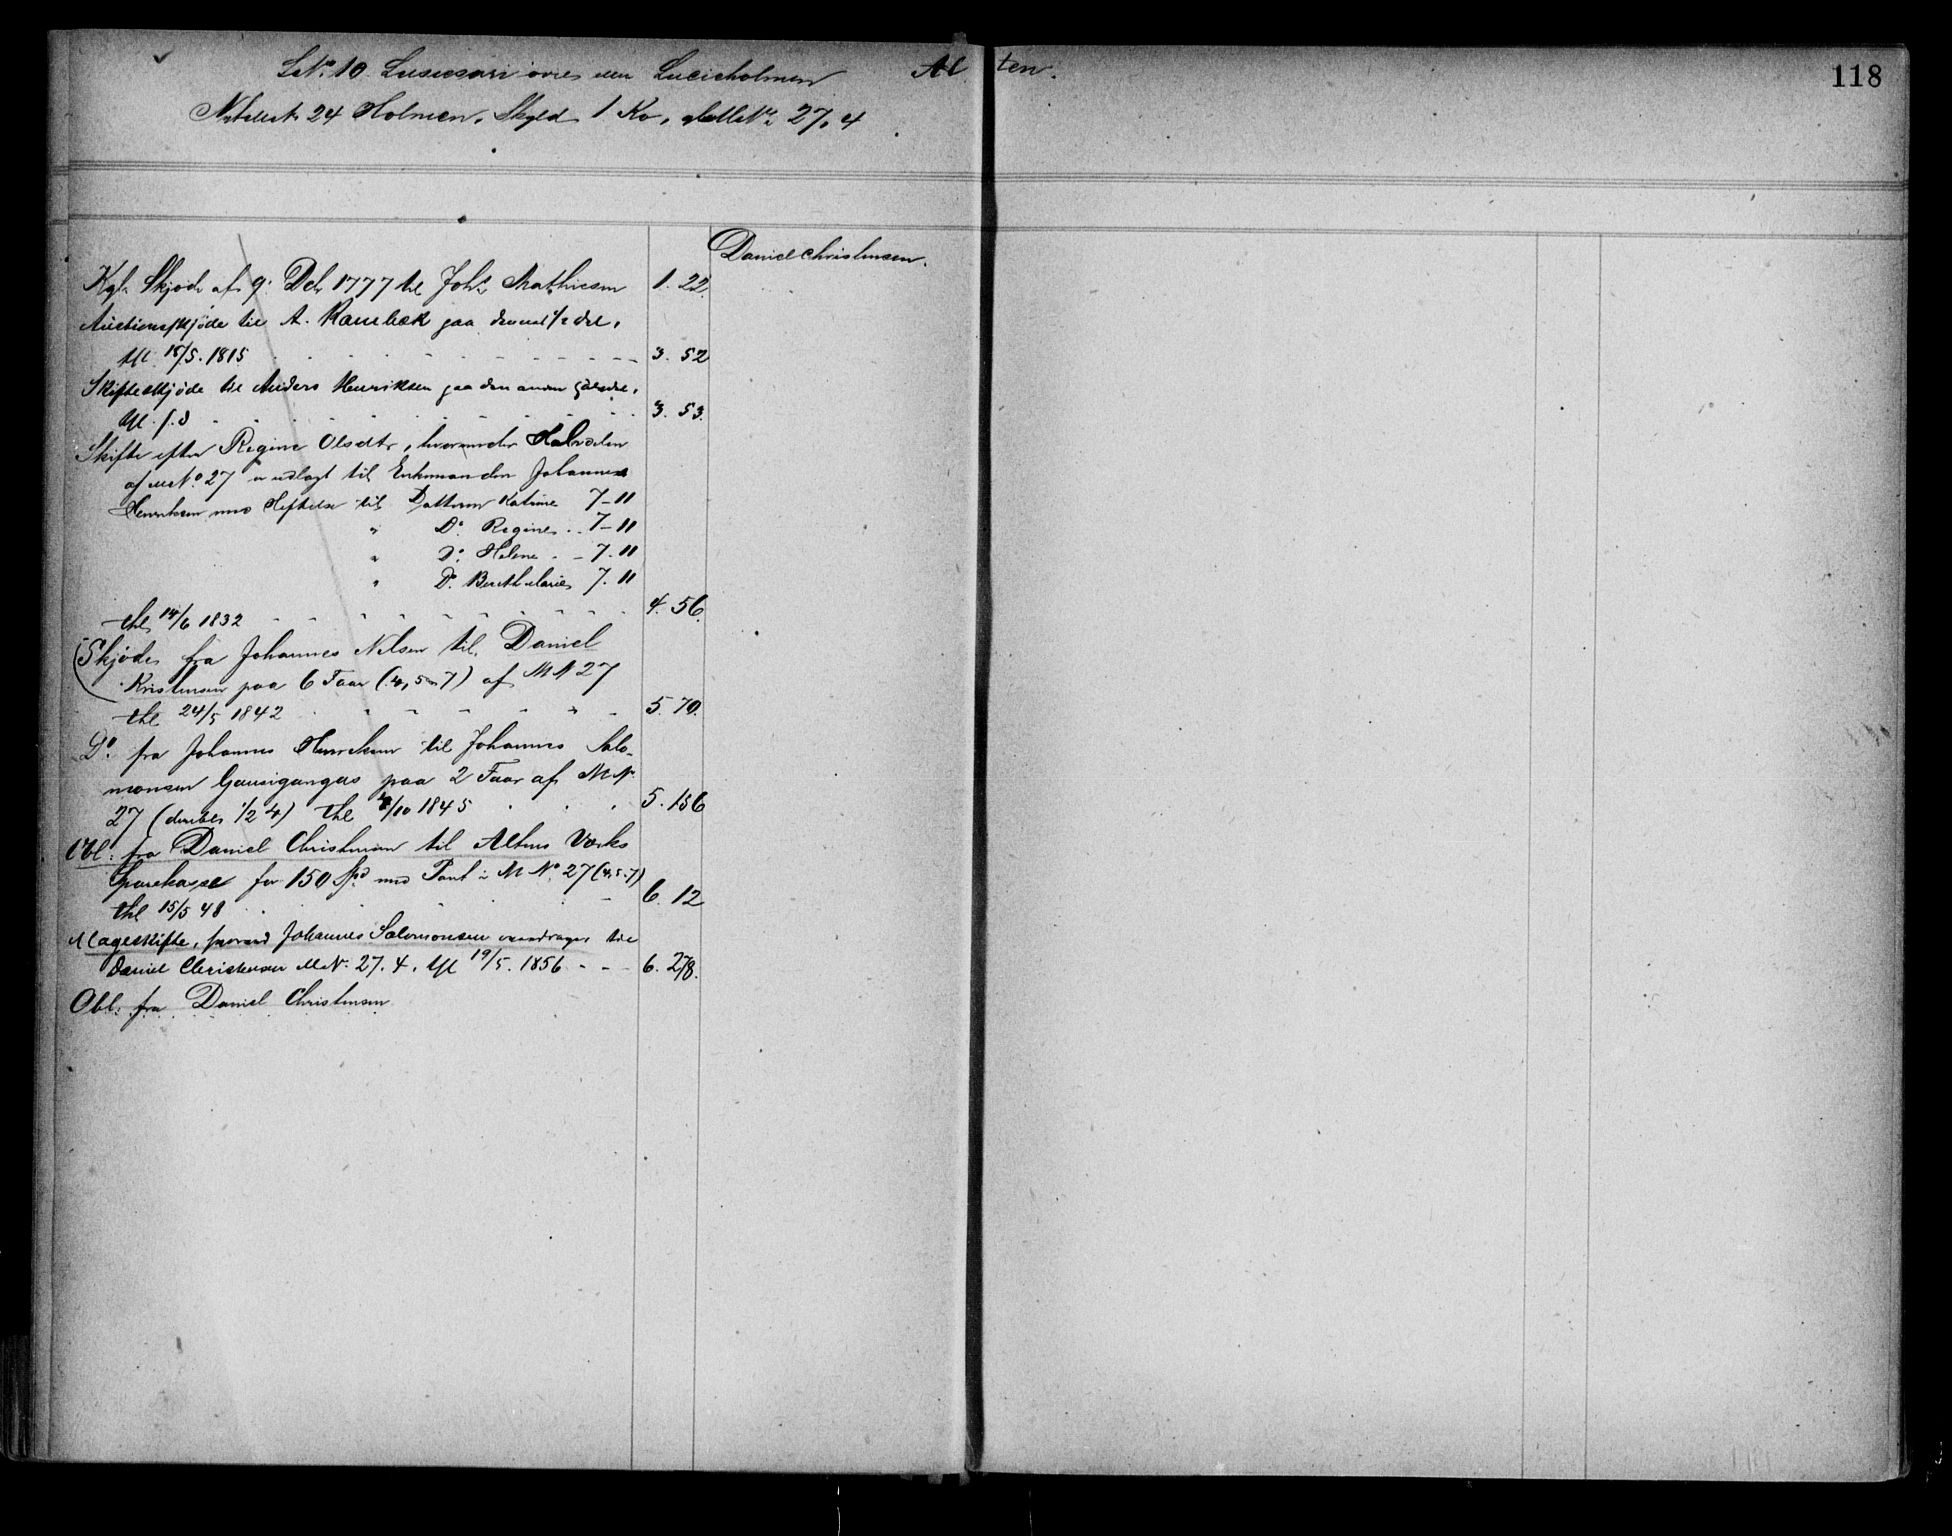 LNo 10 Lusiesari övre eller Lucieholmen Al ten.
118
24 Holmen, Skyld 1 Ko, MNo 27.4
Daniel Christensen.
Kgl. Skjøde af 9. Dcb 1777 til Johs Mathiesen 1. 22.
Auctionsskjøde til A. Rambæk paa denne ½ del,
thl 18/5. 1815 3. 52
Skifteskjøde til Anders Henriksen paa den anden
thl. s. d 3. 53.
Skifte efter Regine Olsdtr, hvorunder Halvdelen
af MNo 27 er udlagt til Enkemanden Johannes
Henriksen med Heftelse til Datteren Katrine 7-11
" Do. Regine 7-11
" Do. Helene 7-11
" Do. Berith Marie 7. 11
thl 14/6 1832 4. 56.
Skjøde fra Johannes Nilsen til Daniel
Kristensen paa 6 Faar (4, 5 7) af M N 27
thl 24/5 1842 5. 70.
Do. fra Johannes Henriksen til Johannes Salo-
monsen Gausigangas paa 2 Faar af M N
27 ( ½ 4) thl /10 1845 5. 156
Obl: fra Daniel Christensen til Altens Værks
Sparekasse for 150 Spd med Pant i M No. 27 (4, 5-7)
thl 15/5 48 6. 12
Mageskifte, hvorved Johannes Salomonsen overdrager til
Daniel Christensen MN. 27. 4, thl 19/5. 1856 - - - 6. 278.
Obl: fra Daniel Christensen